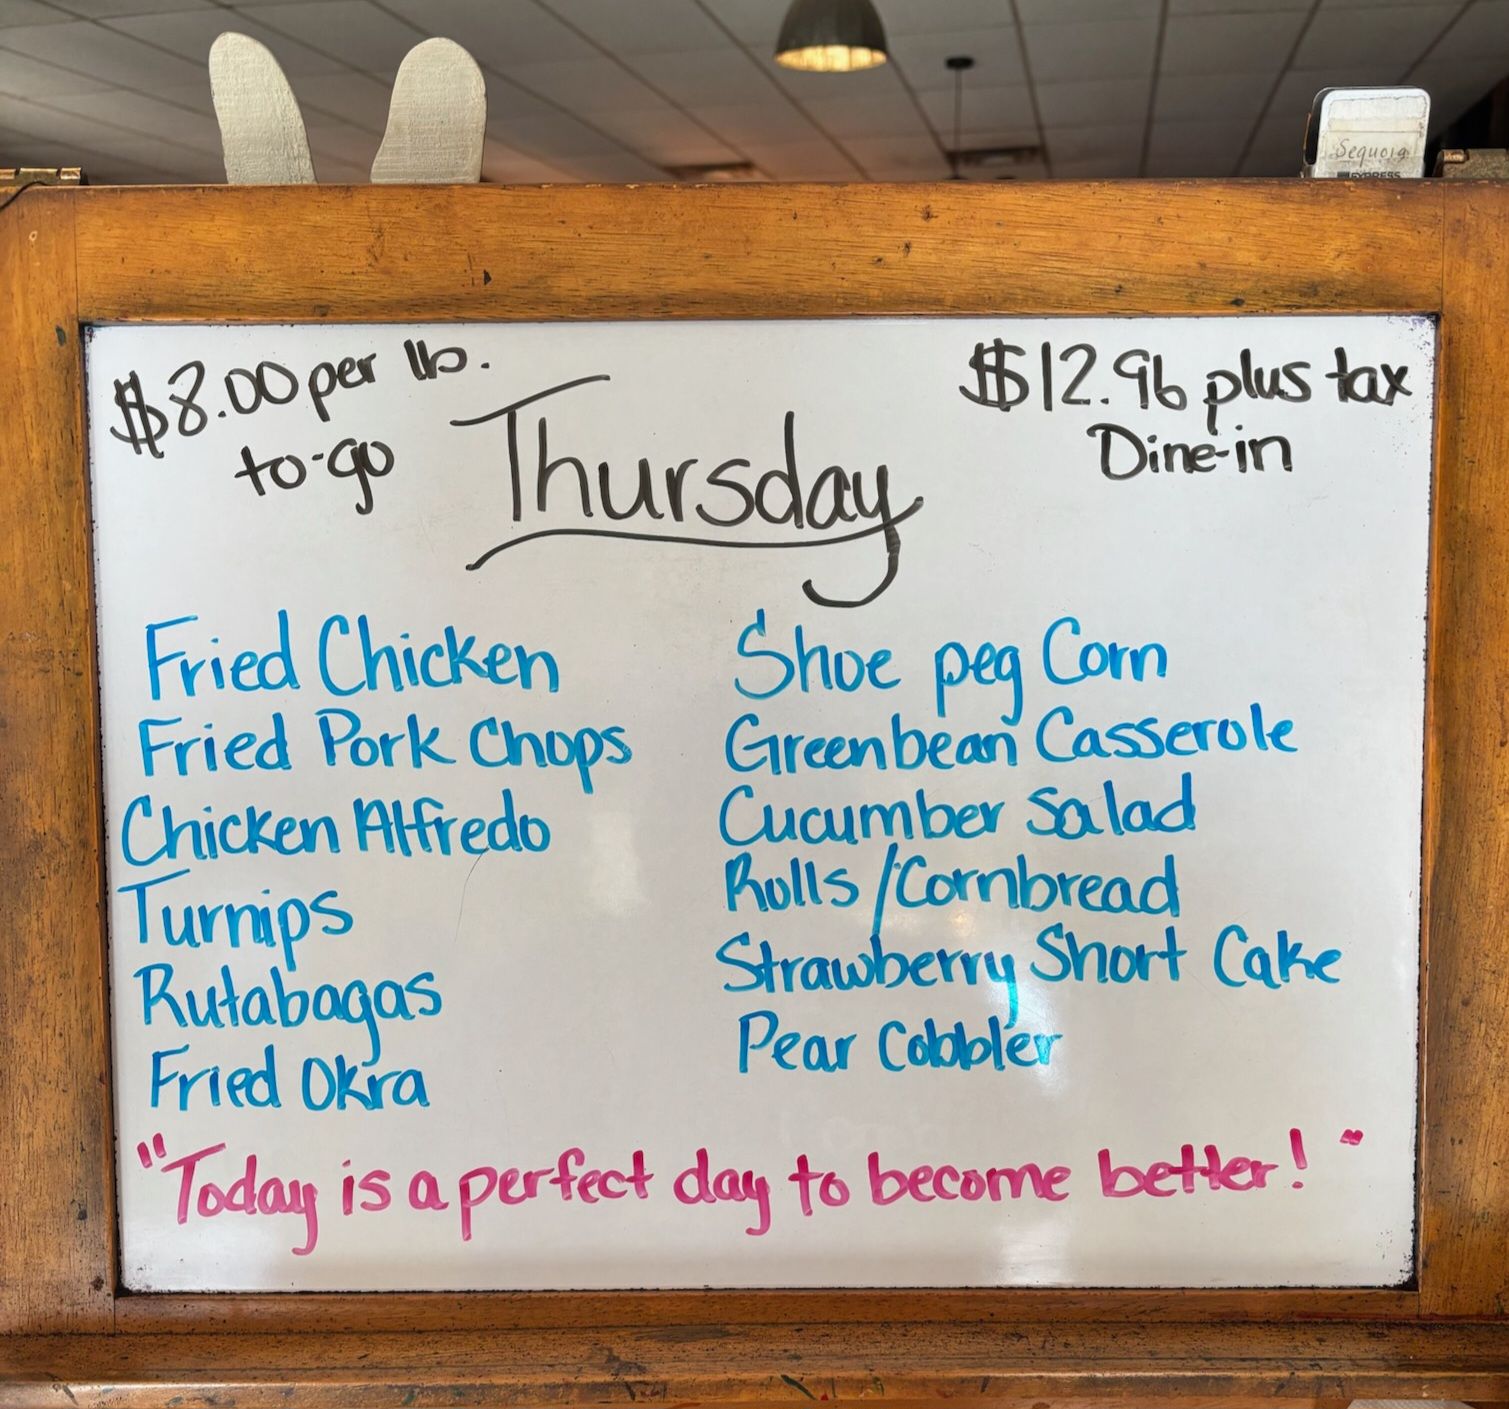 Sequoia
EXPRESS
$8.00 per lb.
to-go
$12.96 plus tax
Dine-in
Thursday
Fried Chicken
Fried Pork Chops
Chicken Alfredo
Turnips
Rutabagas
Fried Okra
Shoe peg Corn
Greenbean Casserole
Cucumber Salad
Rolls / Cornbread
Strawberry Short Cake
Pear Cobbler
"Today is a perfect day to become better! "